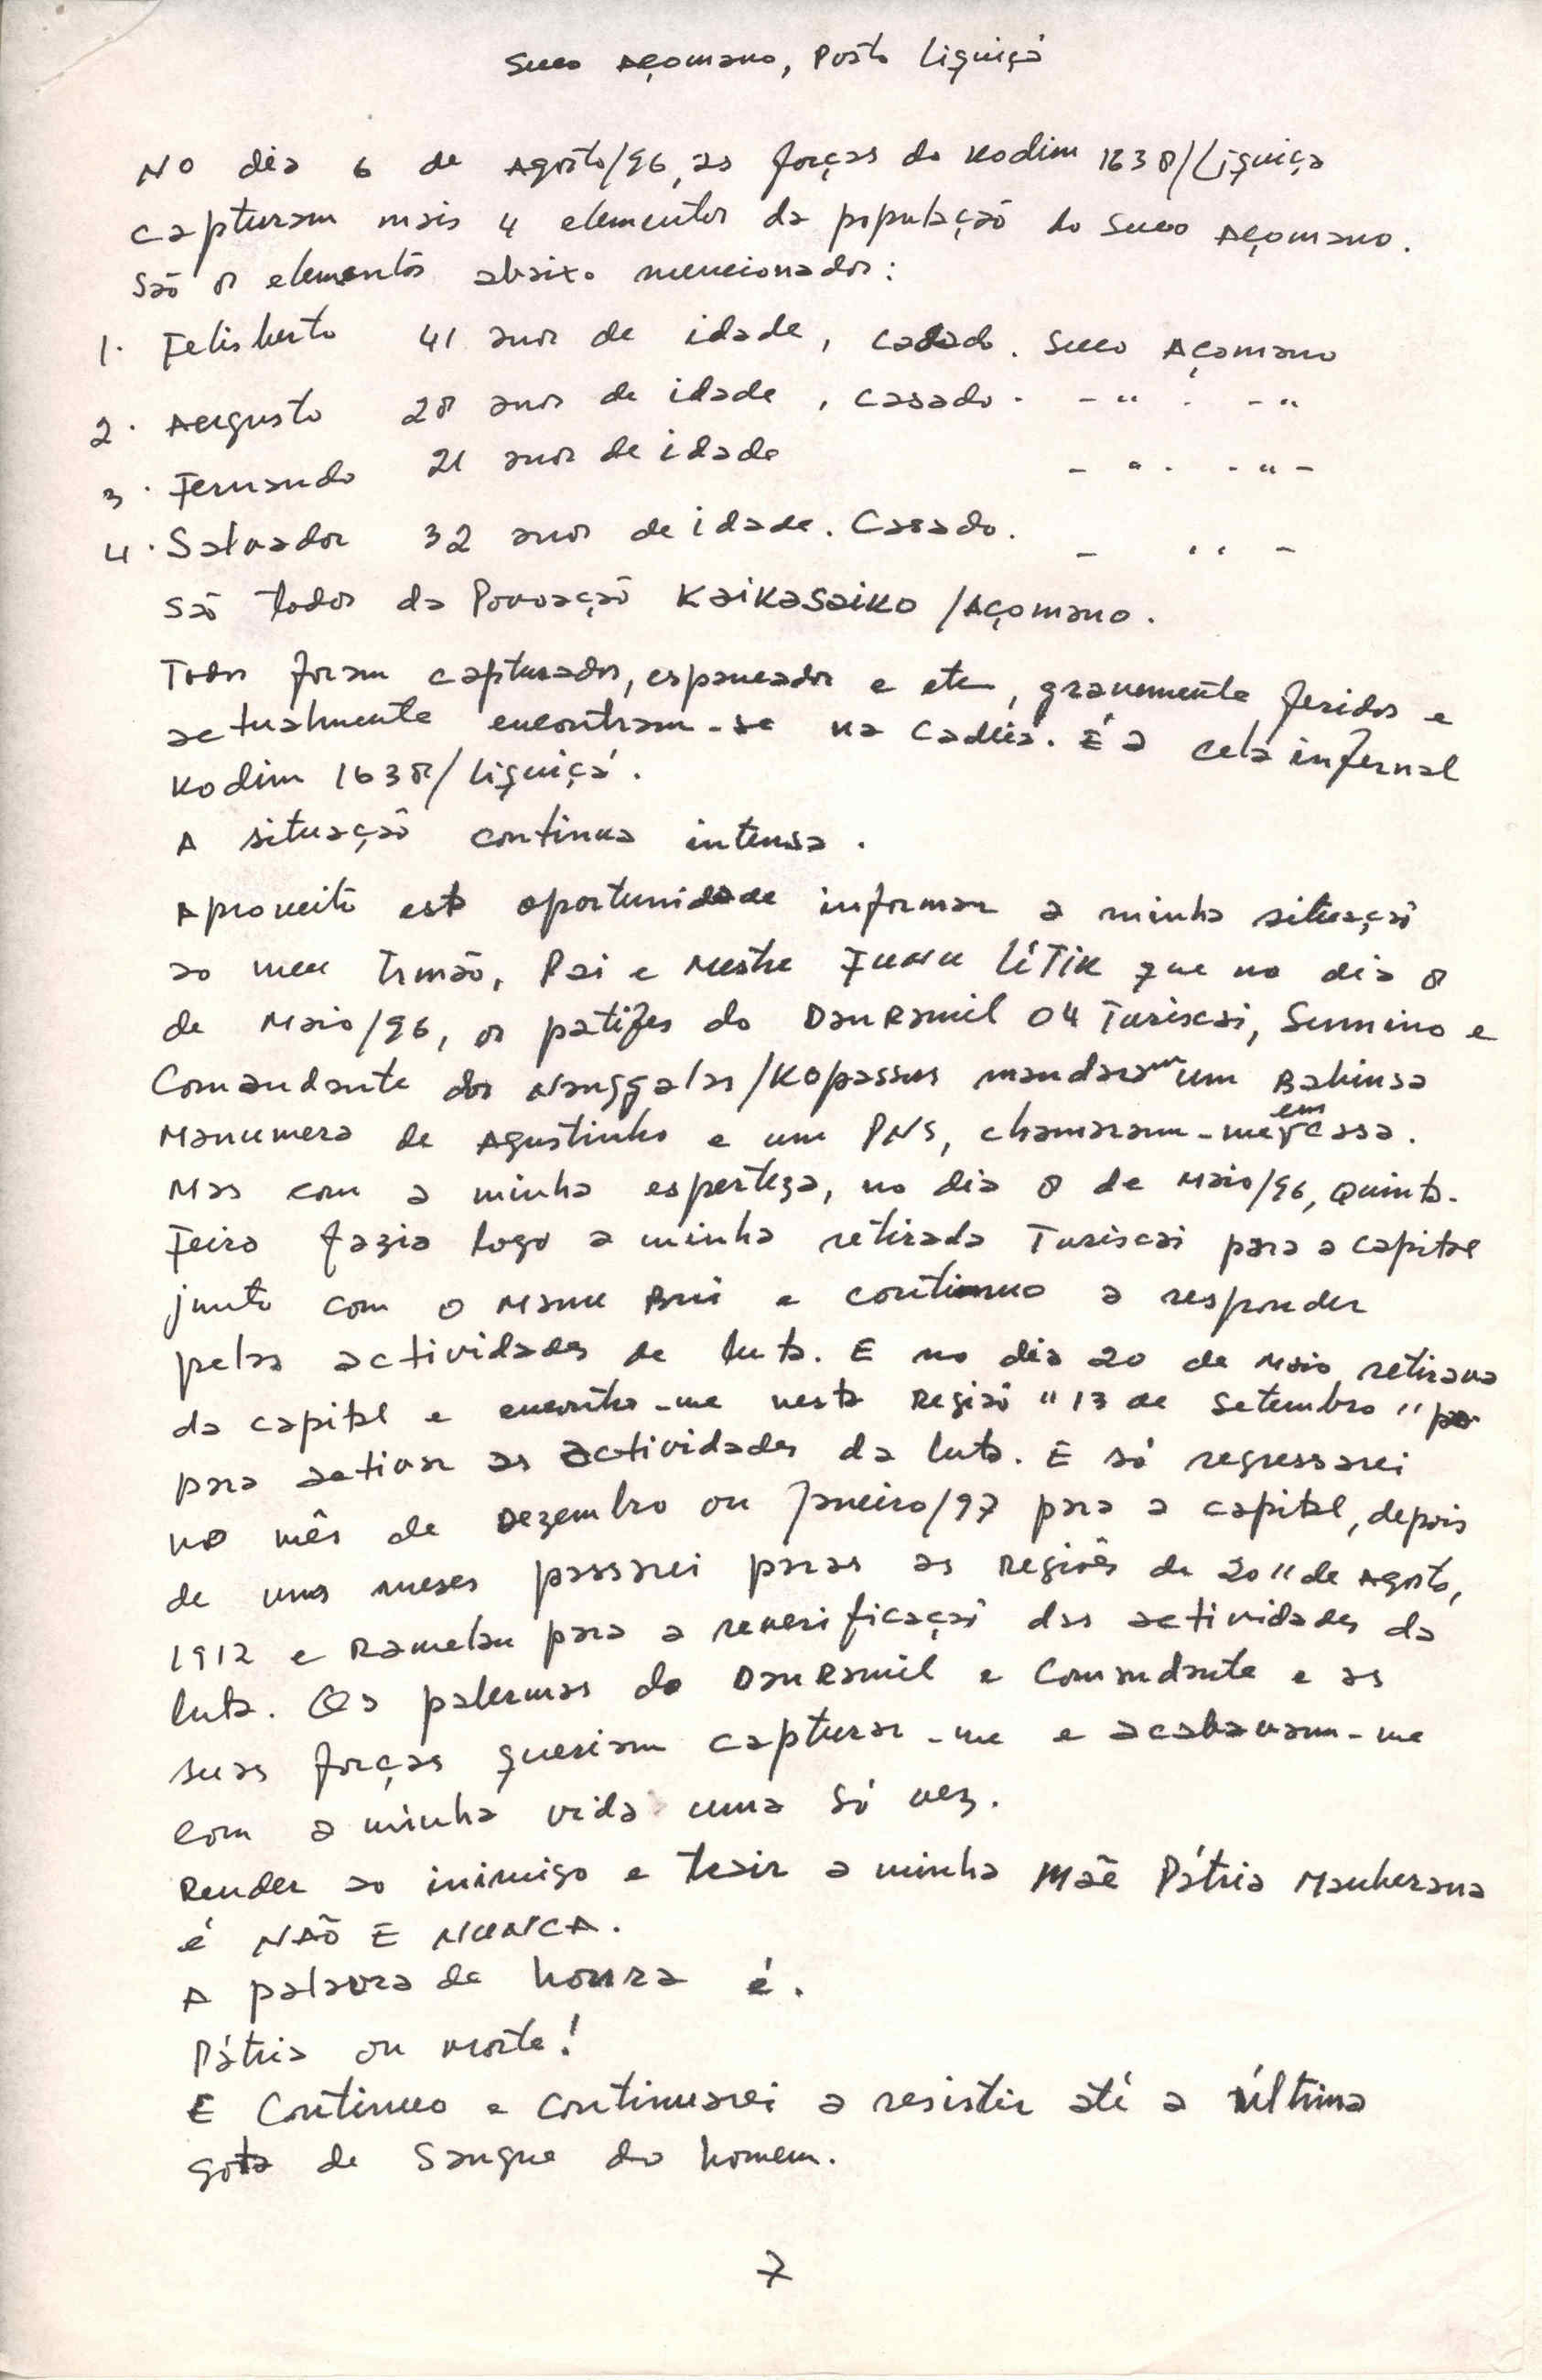 Suco Açomano, Posto Liquiçá
No dia 6 de Agosto/96, as forças do Kodim 1638/Liquiça
capturam mais 4 elementos da população do Suco Açomano.
São os elementos abaixo mencionados:
1. Felisberto 41 anos de idade, casado. Suco Açomano
2. Augusto 28 anos de idade, casado. - " . - "
3. Fernando 21 anos de idade - " . - " -
4. Salvador 32 anos de idade. Casado. - " -
São todos da Povoação Kaikasaiko/Açomano.
Todos foram capturados, espancados e etc, gravemente feridos e
actualmente encontram-se na Cadeia. É a cela infernal
Kodim 1638/Liquiçá.
A situação continua intensa.
Aproveito esta oportunidade informar a minha situação
ao meu Irmão, Pai e Mestre FUNU LÍTIK que no dia 8
de Maio/96, os patifes do DanRamil 04 Turiscai, Sumino e
Comandante dos Nanggalas/Kopassus mandaram um Babinsa
Manumera de Agustinho e um PNS, chamaram-me em casa.
Mas com a minha esperteza, no dia 8 de Maio/96, Quinta-
Feira fazia logo a minha retirada Turiscai para a capital
junto com o Manu Bui e continuo a responder
pelas actividades de luta. E no dia 20 de Maio retirava
da capital e encontro-me nesta Região "13 de Setembro"
para activar as actividades da luta. E só regressarei
no mês de Dezembro ou Janeiro/97 para a capital, depois
de uns meses passarei paras as regiões de 20 "de Agosto,
1912 e Ramelau para a reverificação das actividades da
luta. Os palermas do DanRamil e Comandante e as
suas forças queriam capturar-me e acabavam-me
com a minha vida uma só vez.
Render ao inimigo e trair a minha Mãe Pátria Mauberana
é NÃO E NUNCA.
A palavra de honra é.
Pátria ou morte!
E Continuo e continuarei a resistir até a última
gota de Sangue do homem.
7